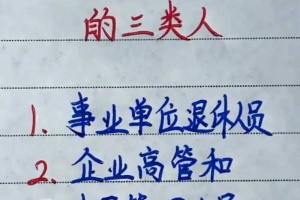 的三类人
1、事业单位退休人员
2、企业高管和